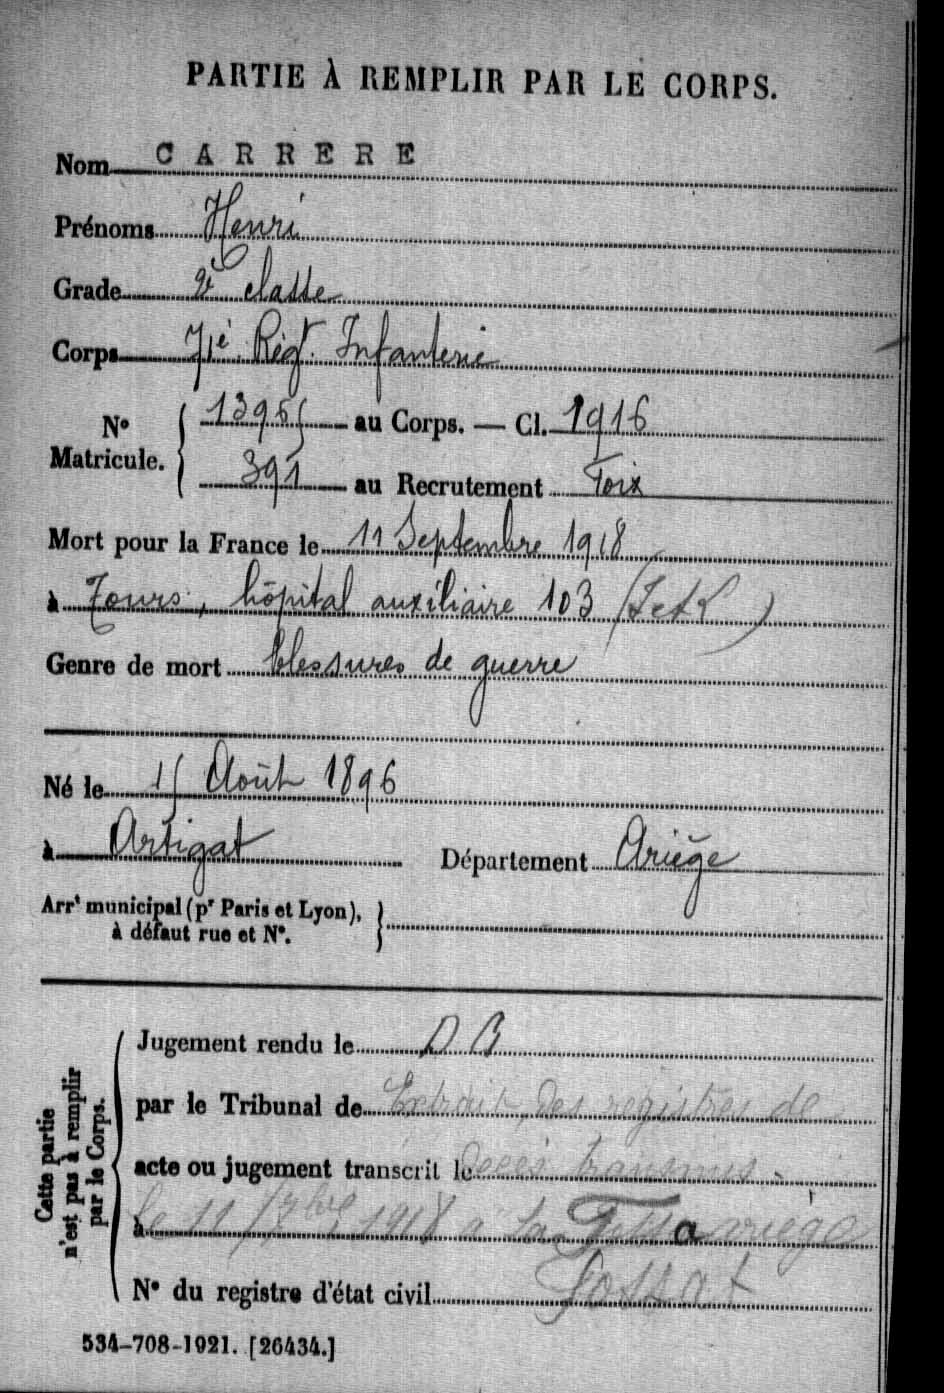 PARTIE À REMPLIR PAR LE CORPS.
Nom CARRERE
Prénoms Henri
Grade 2è classe
Corps 71è Régt. Infanterie
N° Matricule. { 13965 au Corps. — Cl. 1916
391 au Recrutement Foix
Mort pour la France le 11 Septembre 1918
à Tours, hôpital auxiliaire 103 (I et L)
Genre de mort blessures de guerre
Né le 15 Août 1896
à Artigat Département Ariège
Arrt municipal (pr Paris et Lyon),
à défaut rue et N°.
Cette partie n'est pas à remplir par le Corps.
Jugement rendu le D B
par le Tribunal de Extrait des registres de
acte ou jugement transcrit le décès transmis
à le 11 7bre 1918 à ariège
N° du registre d'état civil Fossat
534-708-1921. [26434.]